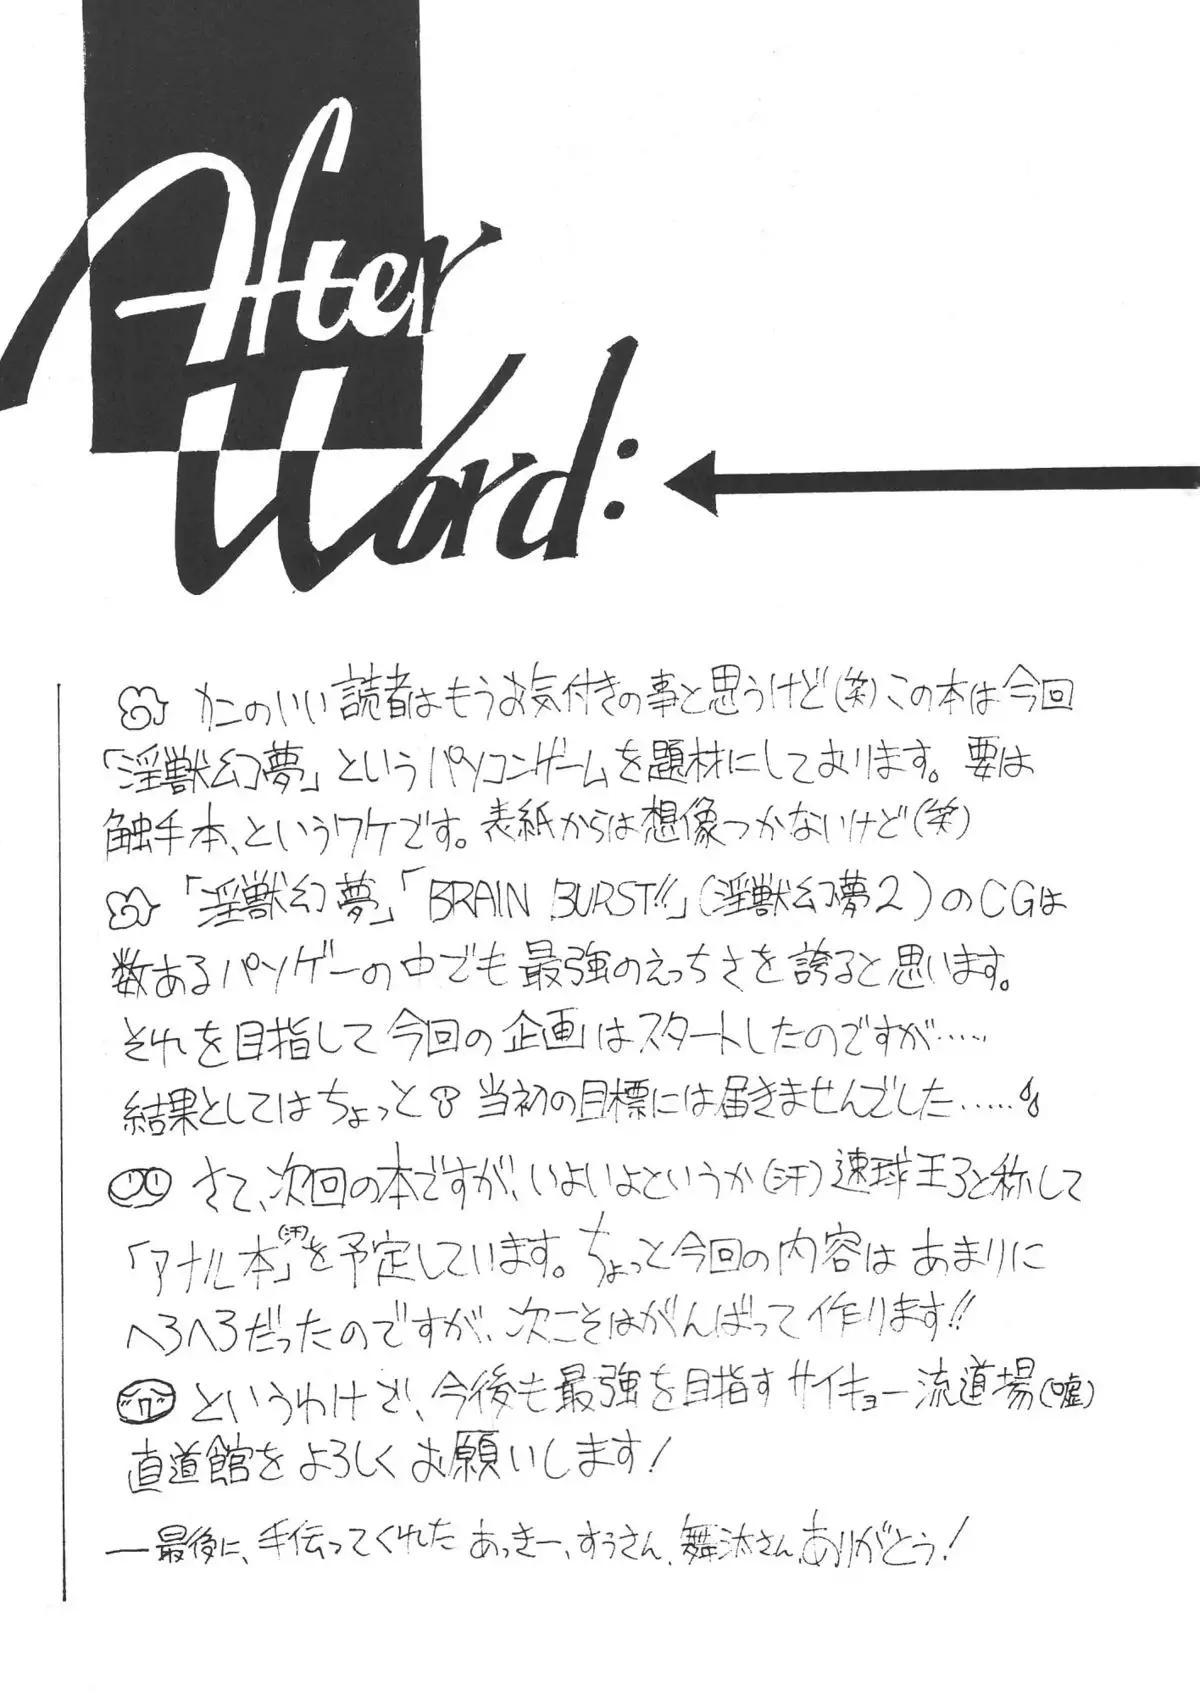 After
Word:
カンのいい読者はもうお気付きの事と思うけど(笑)この本は今回
「淫獣幻夢」というパソコンゲームを題材にしております。要は
触手本、というワケです。表紙からは想像つかないけど(笑)
「淫獣幻夢」「BRAIN BURST!!」(淫獣幻夢2)のCGは
数あるパソゲーの中でも最強のえっちさを誇ると思います。
それを目指して今回の企画はスタートしたのですが……
結果としてはちょっと当初の目標には届きませんでした……
さて、次回の本ですが、いよいよというか(汗)速球王子と称して
「アナル本(汗)」を予定しています。ちょっと今回の内容はあまりに
へろへろだったのですが、次こそはがんばって作ります!!
というわけで、今後も最強を目指すサイキョー流道場(嘘)
直道館をよろしくお願いします!
―最後に、手伝ってくれたあっきー、すうさん、舞汰さん、ありがとう!